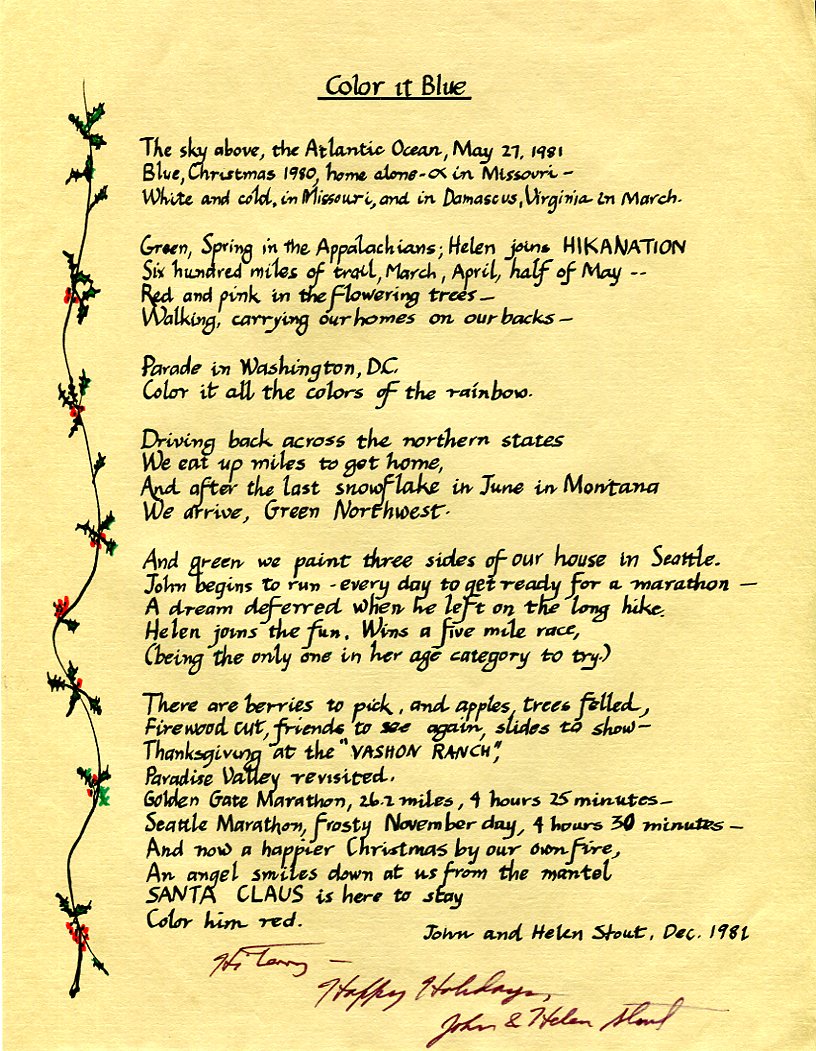 Color it Blue
The sky above, the Atlantic Ocean, May 27, 1981
Blue, Christmas 1980, home alone - or in Missouri -
White and cold, in Missouri, and in Damascus, Virginia in March.
Green, Spring in the Appalachians; Helen joins HIKANATION
Six hundred miles of trail, March, April, half of May --
Red and pink in the flowering trees -
Walking, carrying our homes on our backs -
Parade in Washington, D.C.
Color it all the colors of the rainbow.
Driving back across the northern states
We eat up miles to get home,
And after the last snowflake in June in Montana
We arrive, Green Northwest.
And green we paint three sides of our house in Seattle.
John begins to run - every day to get ready for a marathon -
A dream deferred when he left on the long hike.
Helen joins the fun. Wins a five mile race,
(being the only one in her age category to try.)
There are berries to pick, and apples, trees felled,
Firewood cut, friends to see again, slides to show -
Thanksgiving at the "VASHON RANCH",
Paradise Valley revisited.
Golden Gate Marathon, 26.2 miles, 4 hours 25 minutes -
Seattle Marathon, frosty November day, 4 hours 30 minutes -
And now a happier Christmas by our own fire,
An angel smiles down at us from the mantel
SANTA CLAUS is here to stay
Color him red.
John and Helen Stout, Dec. 1981
Hi Terry -
Happy Holidays,
John & Helen Stout